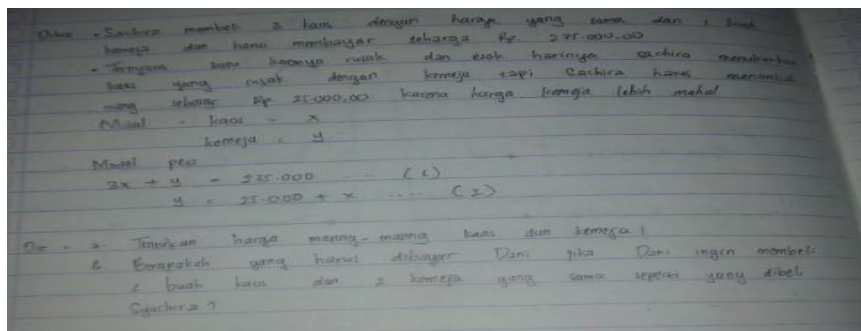 - Sachira membeli 3 kaos dengan harga yang sama dan 1 buah
kemeja dan harus membayar seharga Rp. 275.000.00
- Ternyata satu kaosnya rusak dan esok harinya sachira menukarkan
kaos yang rusak dengan kemeja tapi Sachira harus menambah
uang sebesar Rp 25.000,00 karena harga kemeja lebih mahal
Misal - kaos = x
kemeja = y
Model
3x + y = 275.000 ... (1)
y = 25.000 + x .... (2)
Tentukan harga masing-masing kaos dan kemeja !
b. Berapakah yang harus dibayar Dani jika Dani ingin membeli
2 buah kaos dan 2 kemeja yang sama seperti yang dibeli